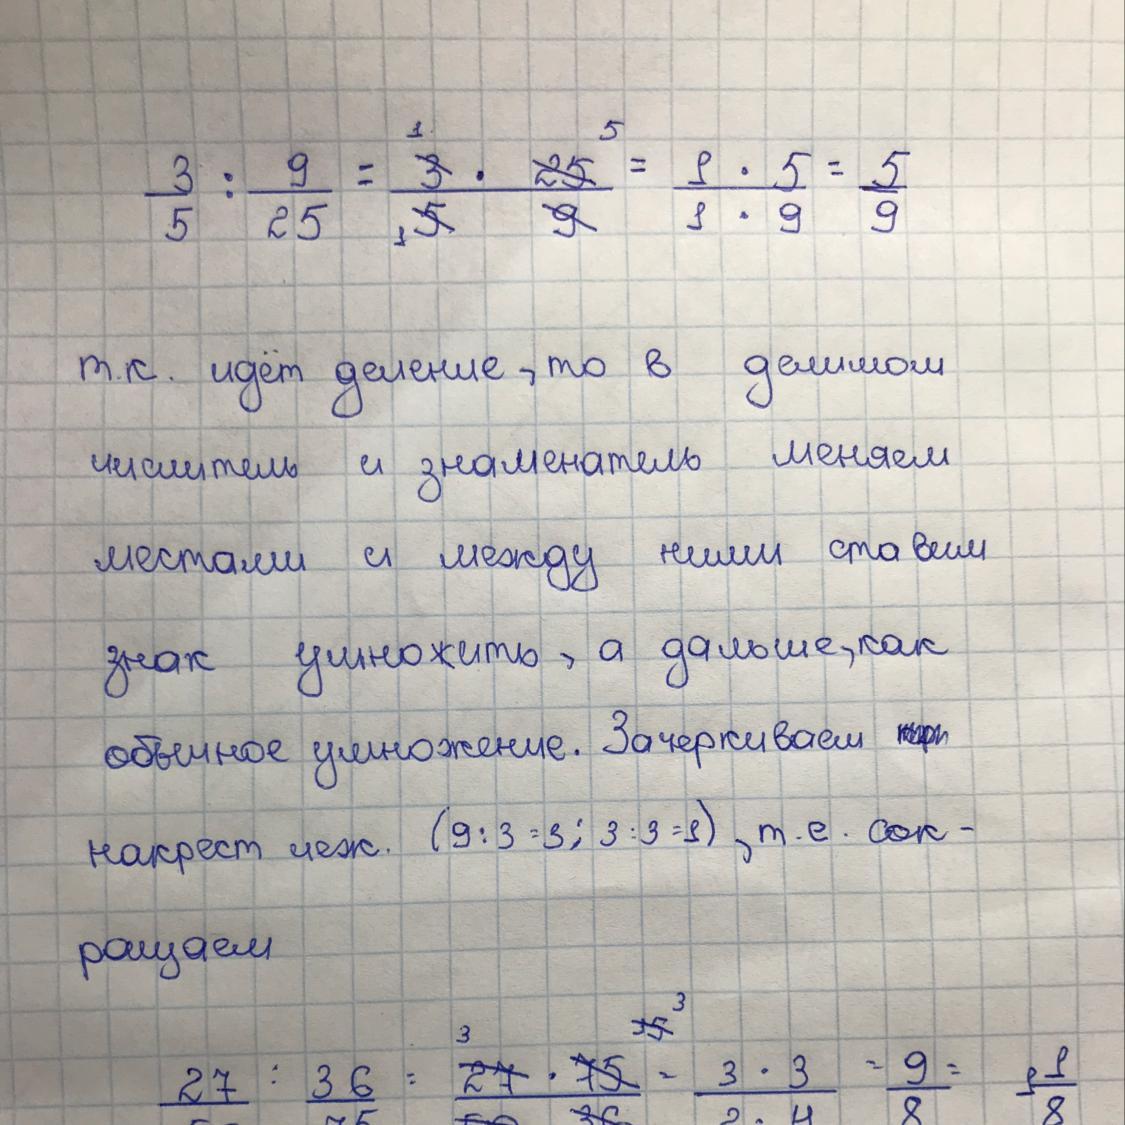 3/5 : 9/25 = 3 · 25 / 5 · 9 = 1 · 5 / 1 · 9 = 5/9
т.к. идёт деление, то в делимом
числитель и знаменатель меняем
местами и между ними ставим
знак умножить, а дальше, как
обычное умножение. Зачеркиваем
накрест
(9:3=3; 3:3=1), т.е. сок-
ращаем
27 : 36 = 27 · 75 = 3 · 3 = 9/8 = 1 1/8